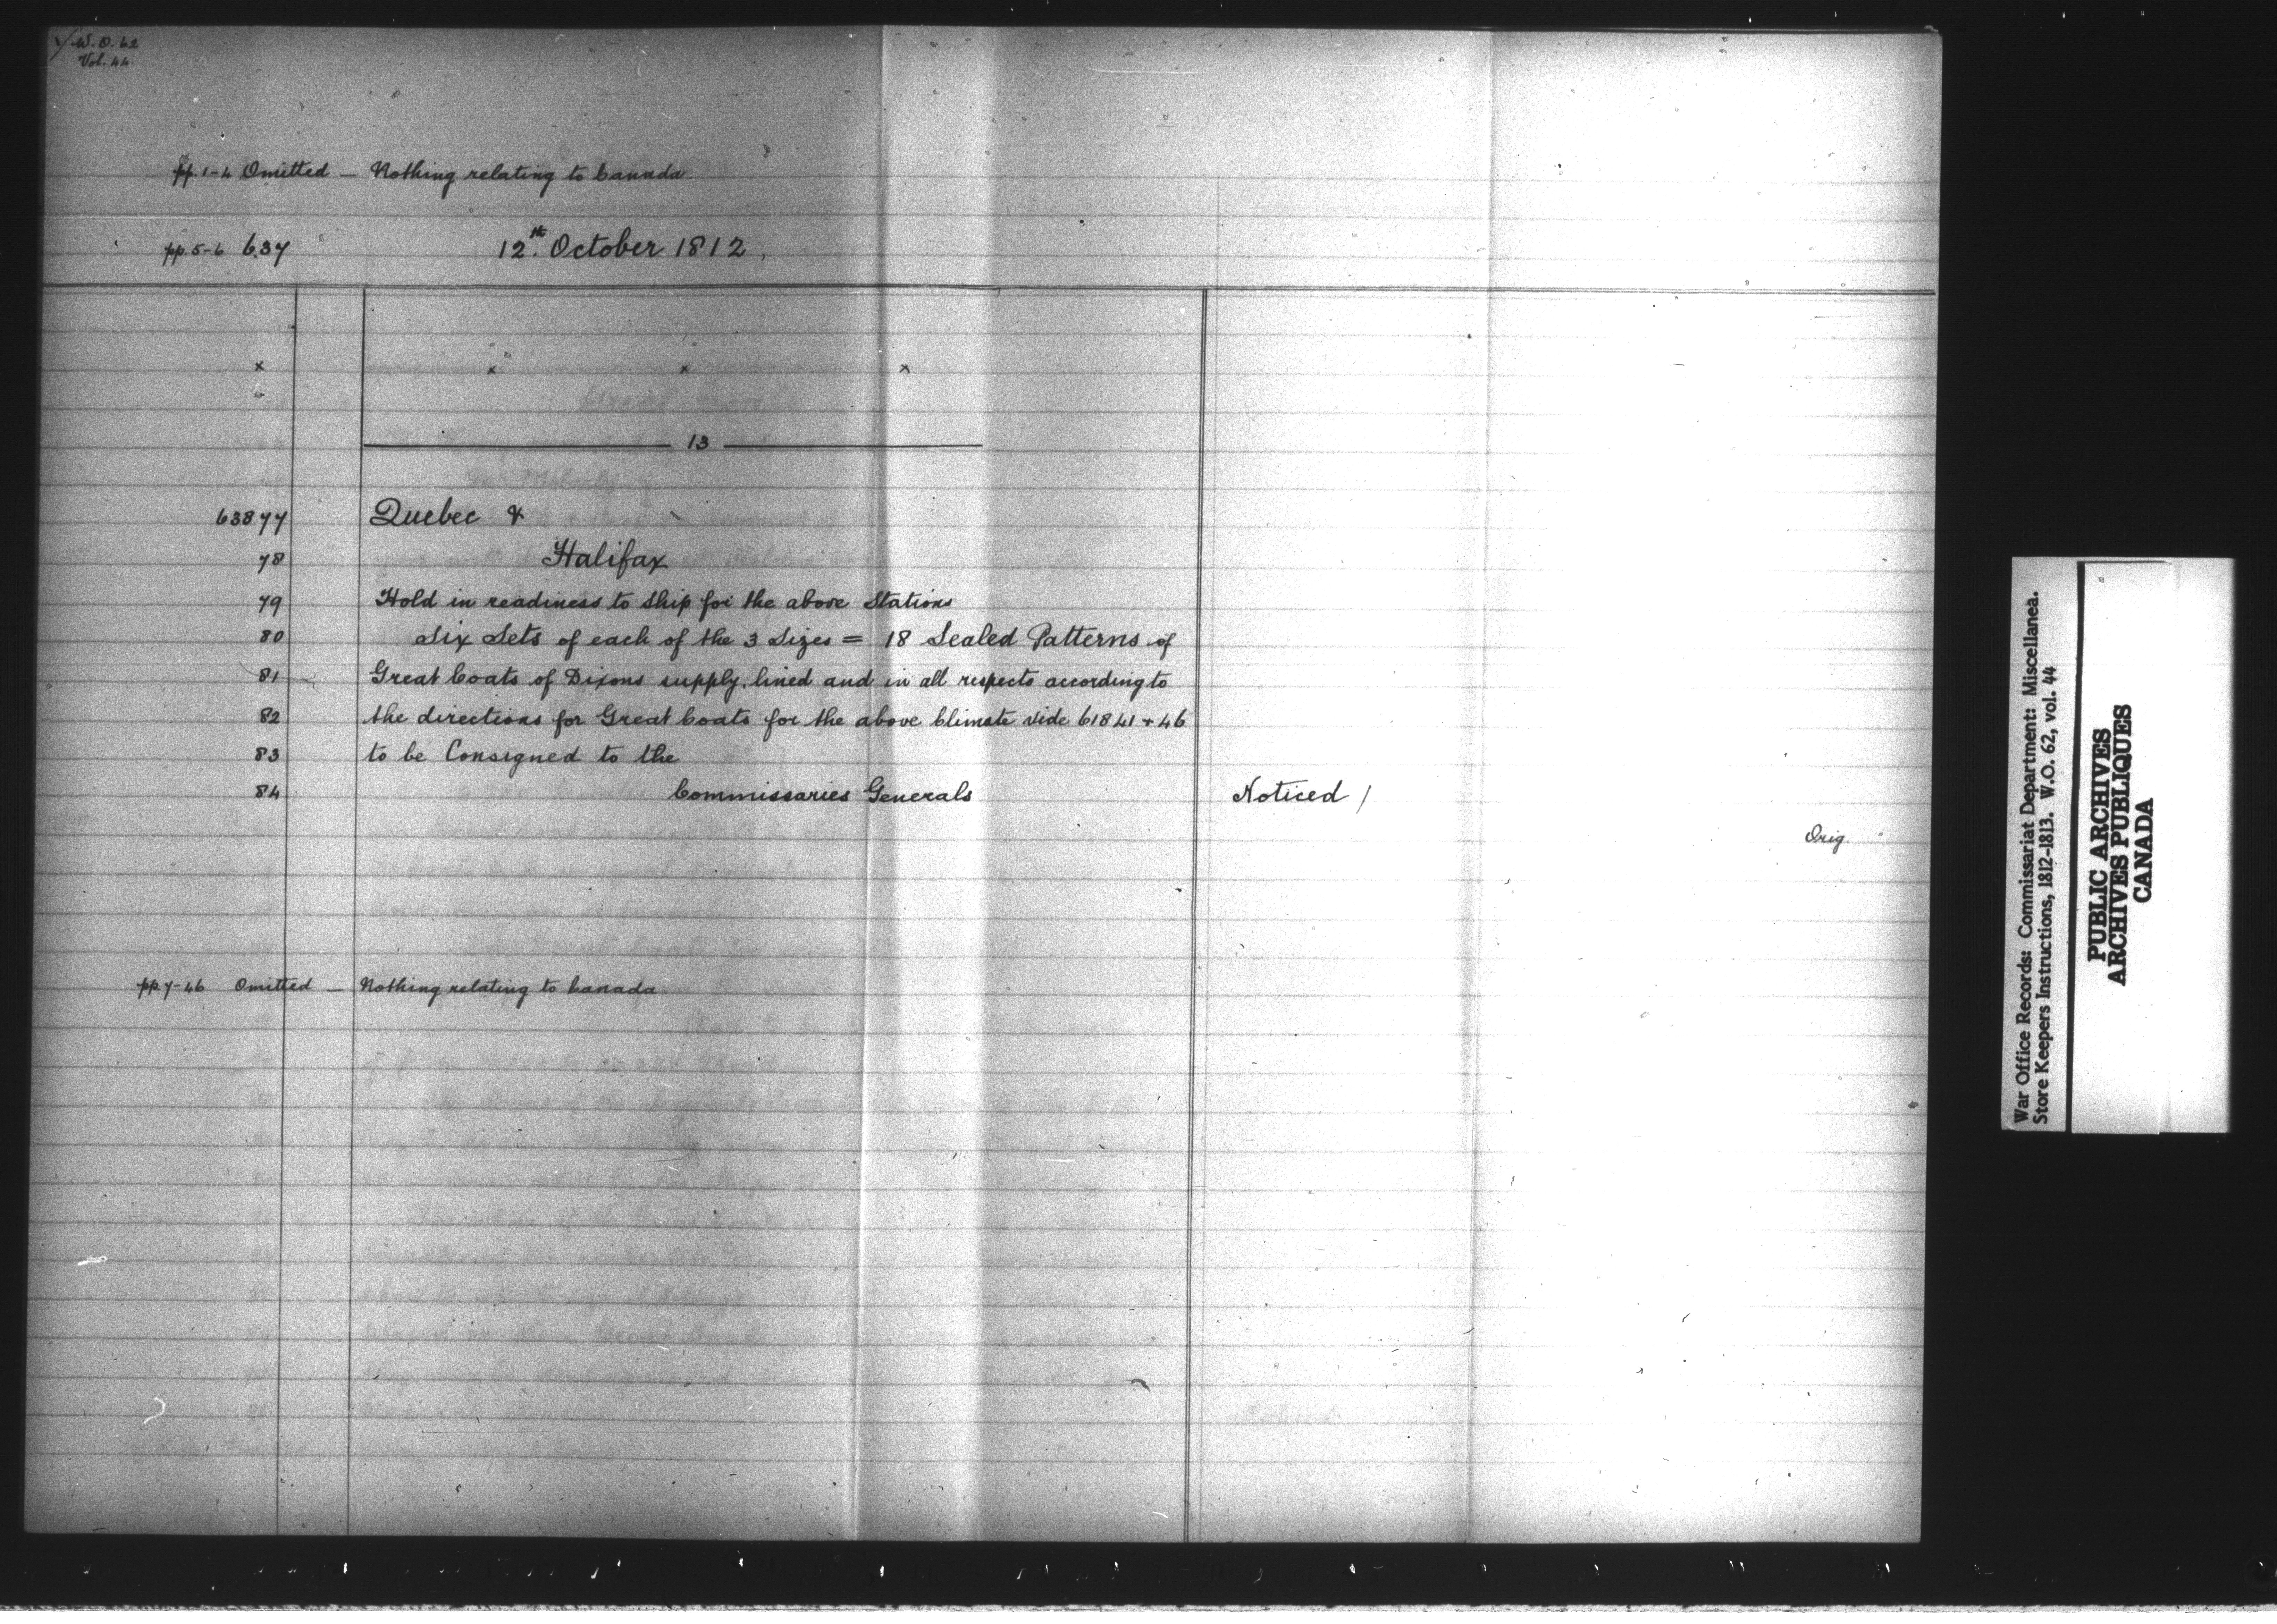 W.O. 62
Vol. 44
pp. 1-4 Omitted — Nothing relating to Canada
pp. 5-6 637 12th. October 1812
x x x x
13
63877 Quebec &
78 Halifax
79 Hold in readiness to ship for the above Stations
80 Six Sets of each of the 3 Sizes = 18 Sealed Patterns of
81 Great Coats of Dixons supply, lined and in all respects according to
82 the directions for Great Coats for the above Climate vide 61841 + 46
83 to be Consigned to the
84 Commissaries Generals Noticed /
Orig.
pp 7-46 Omitted — Nothing relating to Canada
War Office Records: Commissariat Department: Miscellanea.
Store Keepers Instructions, 1812-1813. W.O. 62, vol. 44
PUBLIC ARCHIVES
ARCHIVES PUBLIQUES
CANADA